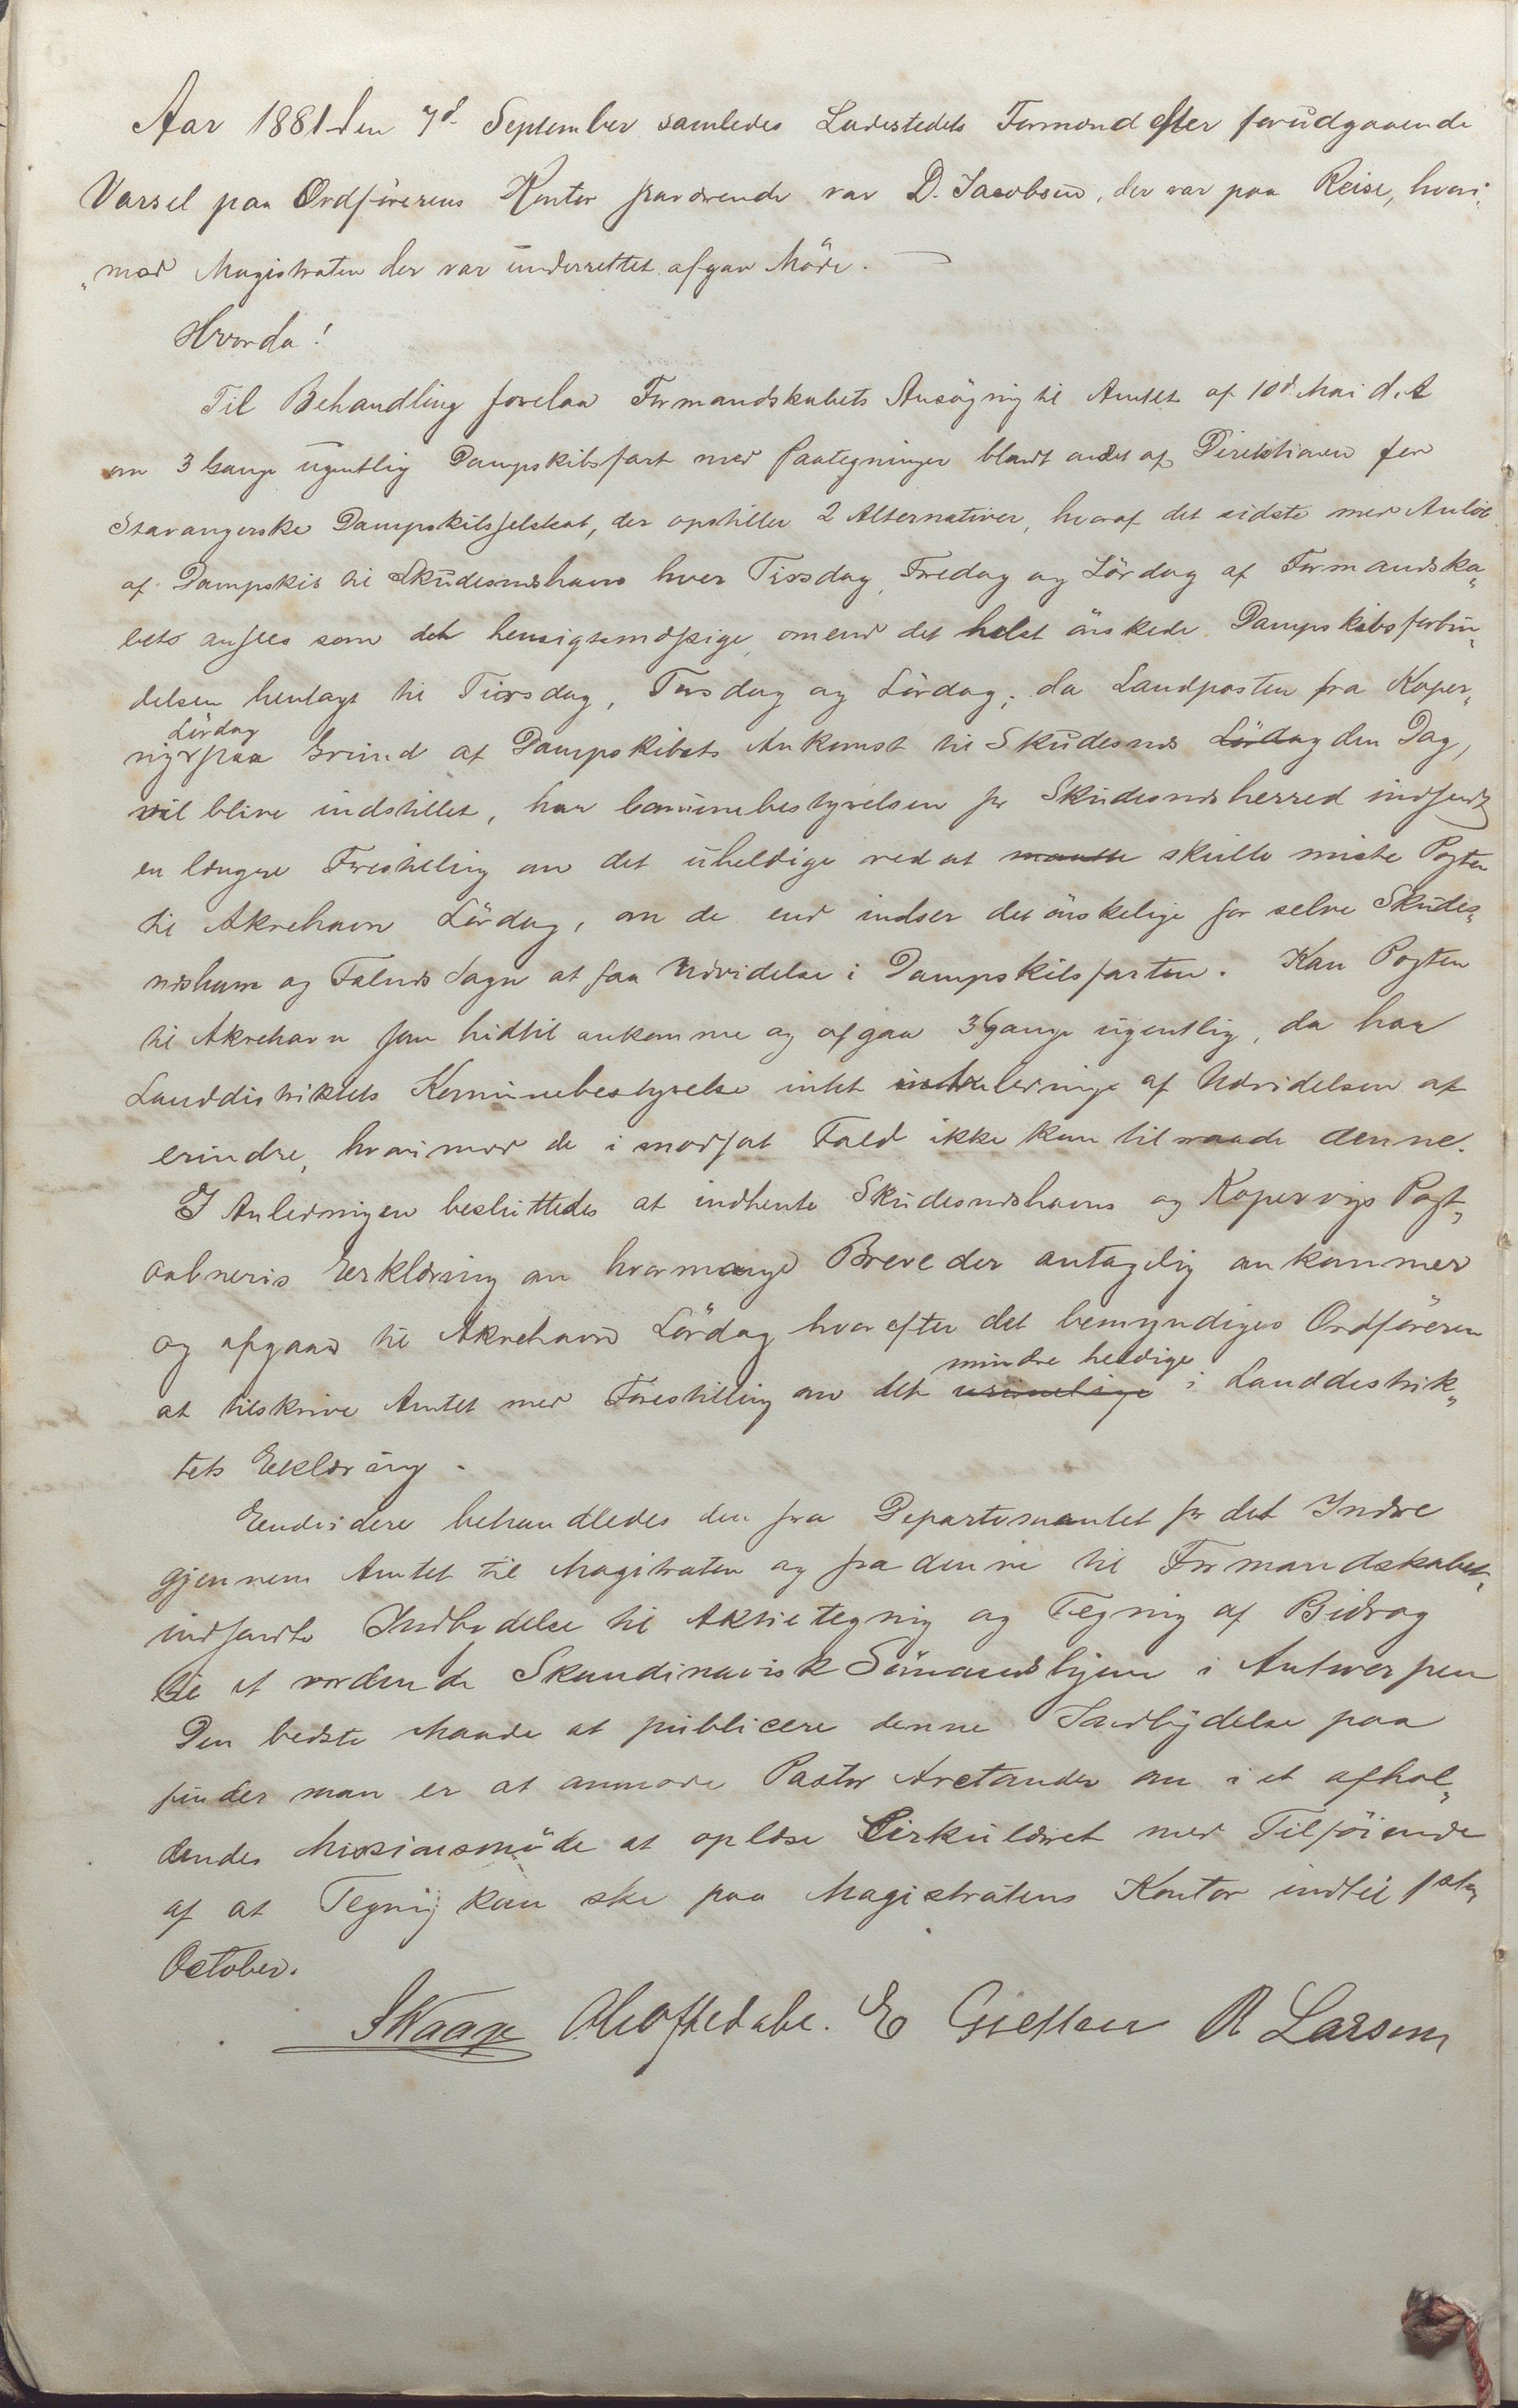 Aar 1881 den 7d September samledes Ladestedets Formænd efter forudgaaende
Varsel paa Ordførerens Kontor fraværende var D. Jacobsen, der var paa Reise, hvori„
„mod Magistraten der var underrettet afgav Møde.
Hvorda!
Til Behandling forelaa Formandskabets Ansøgning til Amtet af 10d Mai d. A
om 3 Gange ugentlig Dampskibsfart med Paategninger blandt andet af Direktionen for
Stavangerske Dampskibsselskab, der opstiller 2 Alternativer, hvoraf det sidste med Anløb
af Dampskib til Skudesneshavn hver Tirsdag, Fredag og Lørdag af Formandska„
bets ansees som det hensigtsmæssige, omend det helst ønskede Dampskibsforbin„
delsen henlagt til Tirsdag, Torsdag og Lørdag; da Landposten fra Koper„
vig Lørdag paa Grund af Dampskibets Ankomst til Skudesnes Lørdag den Dag,
vil blive indstillet, har Communebestyrelsen for Skudesnes herred indsendt
en længere Forestilling om det uheldige ved at maatte skulle miste Posten
til Akrehavn Lørdag, om de end indser det ønskelige for selve Skudes„
neshavn og Falnes Sogn at faa Udvidelse i Dampskibsfarten. Kan Posten
til Akrehavn som hidtil ankomme og afgaa 3 Gange ugentlig, da har
Landdistriktets Kommunebestyrelse intet i Udvidelsen at
erindre, hvorimod de i modsat Fald ikke kan tilraade denne.
I Anledningen besluttedes at indhente Skudesneshavns og Kopervigs Post„
aabneris Erklæring om hvormange Breve der antagelig ankommer
og afgaar til Akrehavn Lørdag hvorefter det bemyndiges Ordføreren
at tilskrive Amtet med Forestilling om det urimelige mindre heldige i Landdistrik„
tets Erklæring.
Endvidere behandledes den fra Departementet for det Indre
gjennem Amtet til Magistraten og fra denne til Formandskabet
indsendte Indbydelse til Aktietegning og Tegning af Bidrag
til et vordende Skandinavisk Sømandshjem i Antwerpen
Den bedste Maade at publicere denne Indbydelse paa
finder man er at anmode Pastor Arctander om i et afhol„
dendes Missionsmøde at oplæse Cirkulæret med Tilføiende
af at Tegning kan ske paa Magistratens Kontor indtil 1ste
October.
S Waage O Hoftedahl. E Gjettsen R Larsen